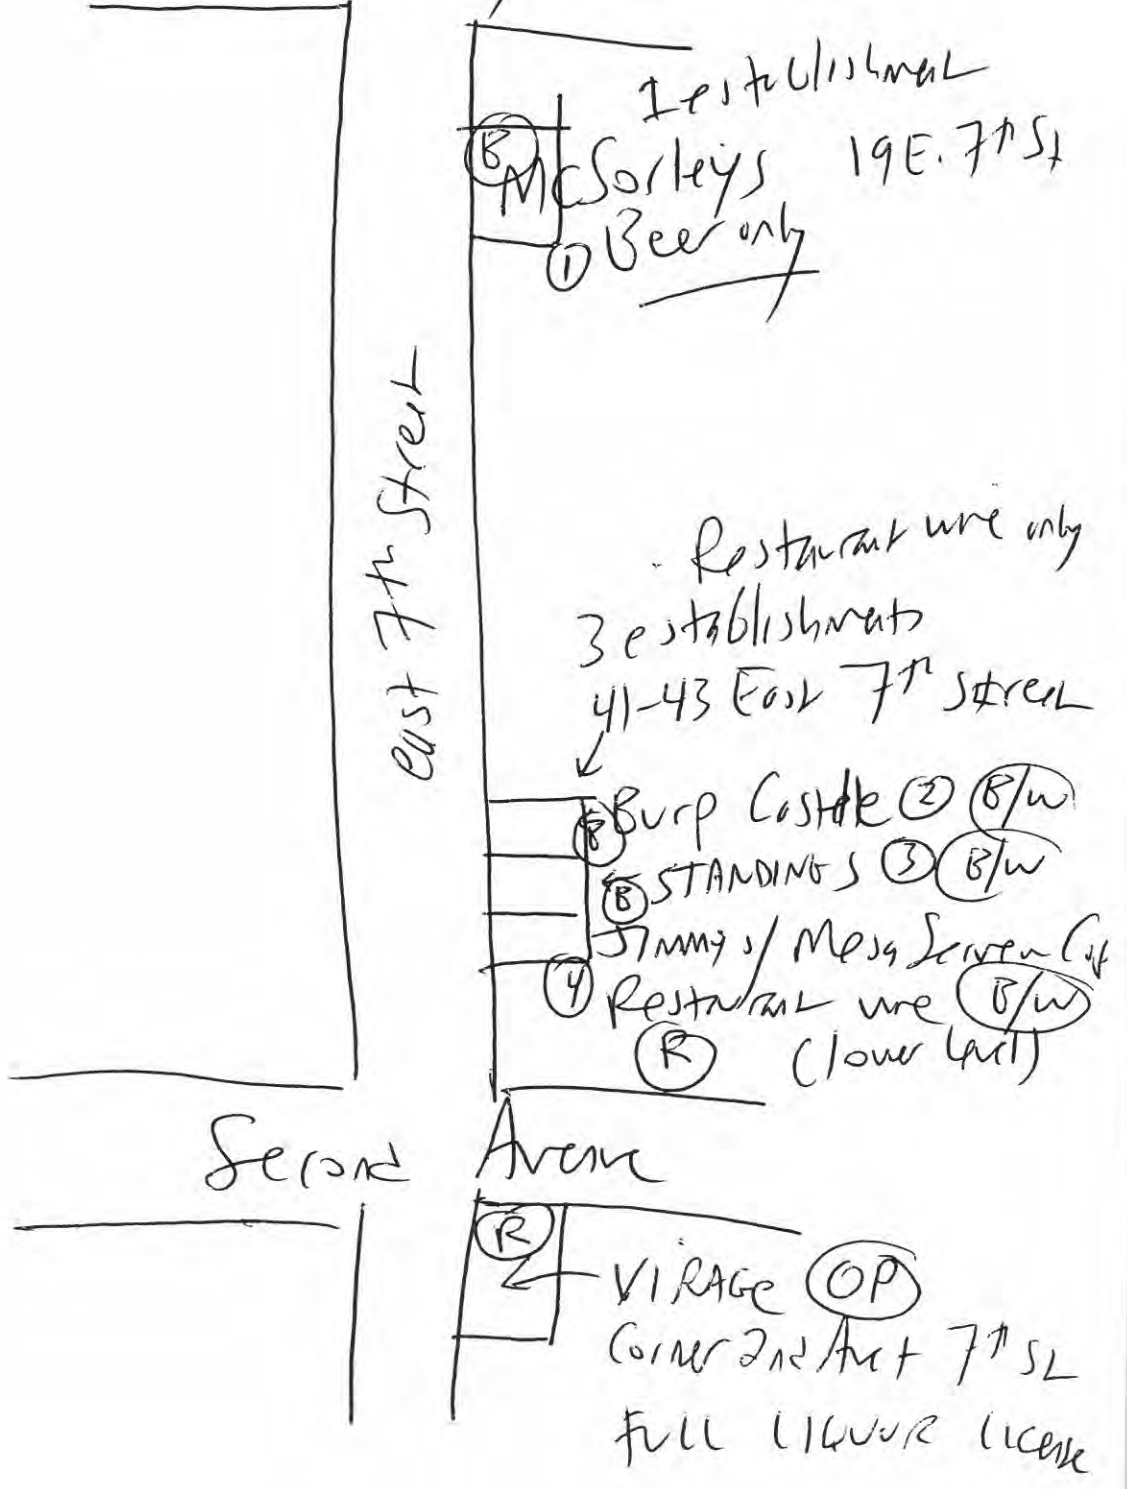 1 establishment
B
McSorleys 19 E. 7th St
① Beer only
East 7th Street
Restaurant wine only
3 establishments
41-43 East 7th Street
B Burp Castle ② B/W
B STANDINGS ③ B/W
Jimmys/ Mesa
④ Restaurant wine B/W
R (lower level)
Second Avenue
R
VIRAGE OP
Corner 2nd Ave + 7th St
FULL LIQUOR License